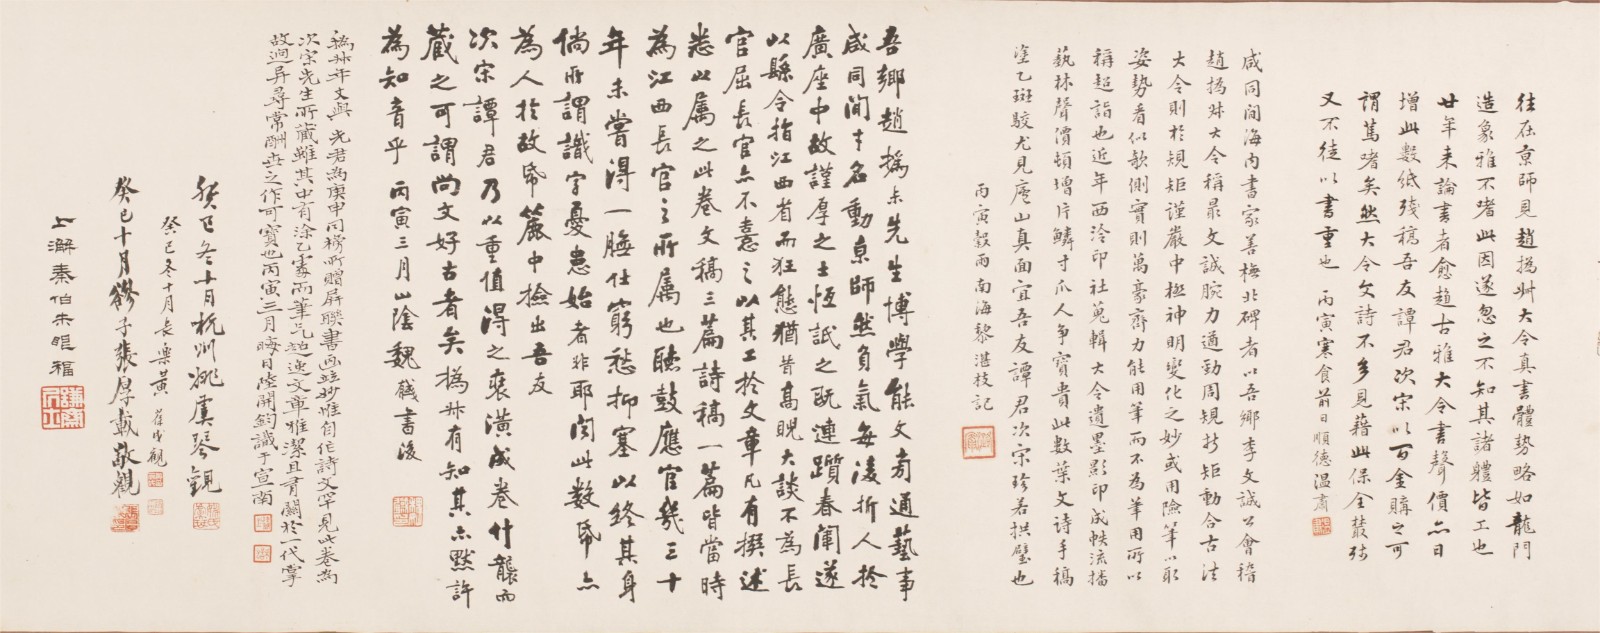 往在京師見趙撝叔大令真書體勢略如龍門
造象雅不嗜此因遂忽之不知其諸軆皆工也
廿年来論書者愈趨古雅大令書聲價亦日
增此數紙殘稿吾友譚君次宋以百金購之可
謂篤嗜矣然大令文詩不多見藉此保全叢殘
又不徒以書重也 丙寅寒食前日順德温肅
咸同間海内書家善橅北碑者以吾鄉李文誠公會稽
趙撝叔大令稱最文誠腕力遒勁周規折矩動合古法
大令則於規矩謹嚴中極神明變化之妙或用險筆以取
姿勢看似欹側實則萬豪齊力能用筆而不為筆用所以
稱超詣也近年西泠印社蒐輯大令遺墨影印成帙流播
藝林聲價頓增片鱗寸爪人争寶貴此數葉文詩手稿
塗乙斑駮尤見廬山真面宜吾友譚君次宋珍若拱璧也
丙寅穀雨南海黎湛枝記
吾鄉趙撝未先生博學能文旁通藝事
咸同間才名動京師然負氣每淩折人於
廣座中故謹厚之士恆詆之既連躓春闈遂
以縣令指江西省而狂態猶昔高睨大談不為長
官屈長官亦不憙之以其工於文章凡有撰述
悉以属之此卷文稿三篇詩稿一篇皆當時
為江西長官之所属也聽鼓應官幾三十
年未嘗得一膴仕窮愁抑塞以終其身
倘所謂識字憂患始者非耶閱此數帋亦
為人於故帋簏中撿出吾友
次宋譚君乃以重值得之裒潢成卷什襲而
藏之可謂尚文好古者矣撝叔有知其亦默許
為知音乎 丙寅三月山陰魏戫書後
撝叔年丈與先君為庚申同榜所贈屏聯書画竝妙惟自作詩文罕見此卷為
次宋先生所藏雖其中有涂乙處而筆氣遒逸文章雅潔且有關於一代掌
故迥异尋常酬世之作可寶也丙寅三月晦日陸開鈞識于宣南
癸巳冬十月杭州姚虞琴觀
癸巳冬十月長樂黃葆戉觀
癸巳十月髎子張厚載敬觀
上澣秦伯未眼福